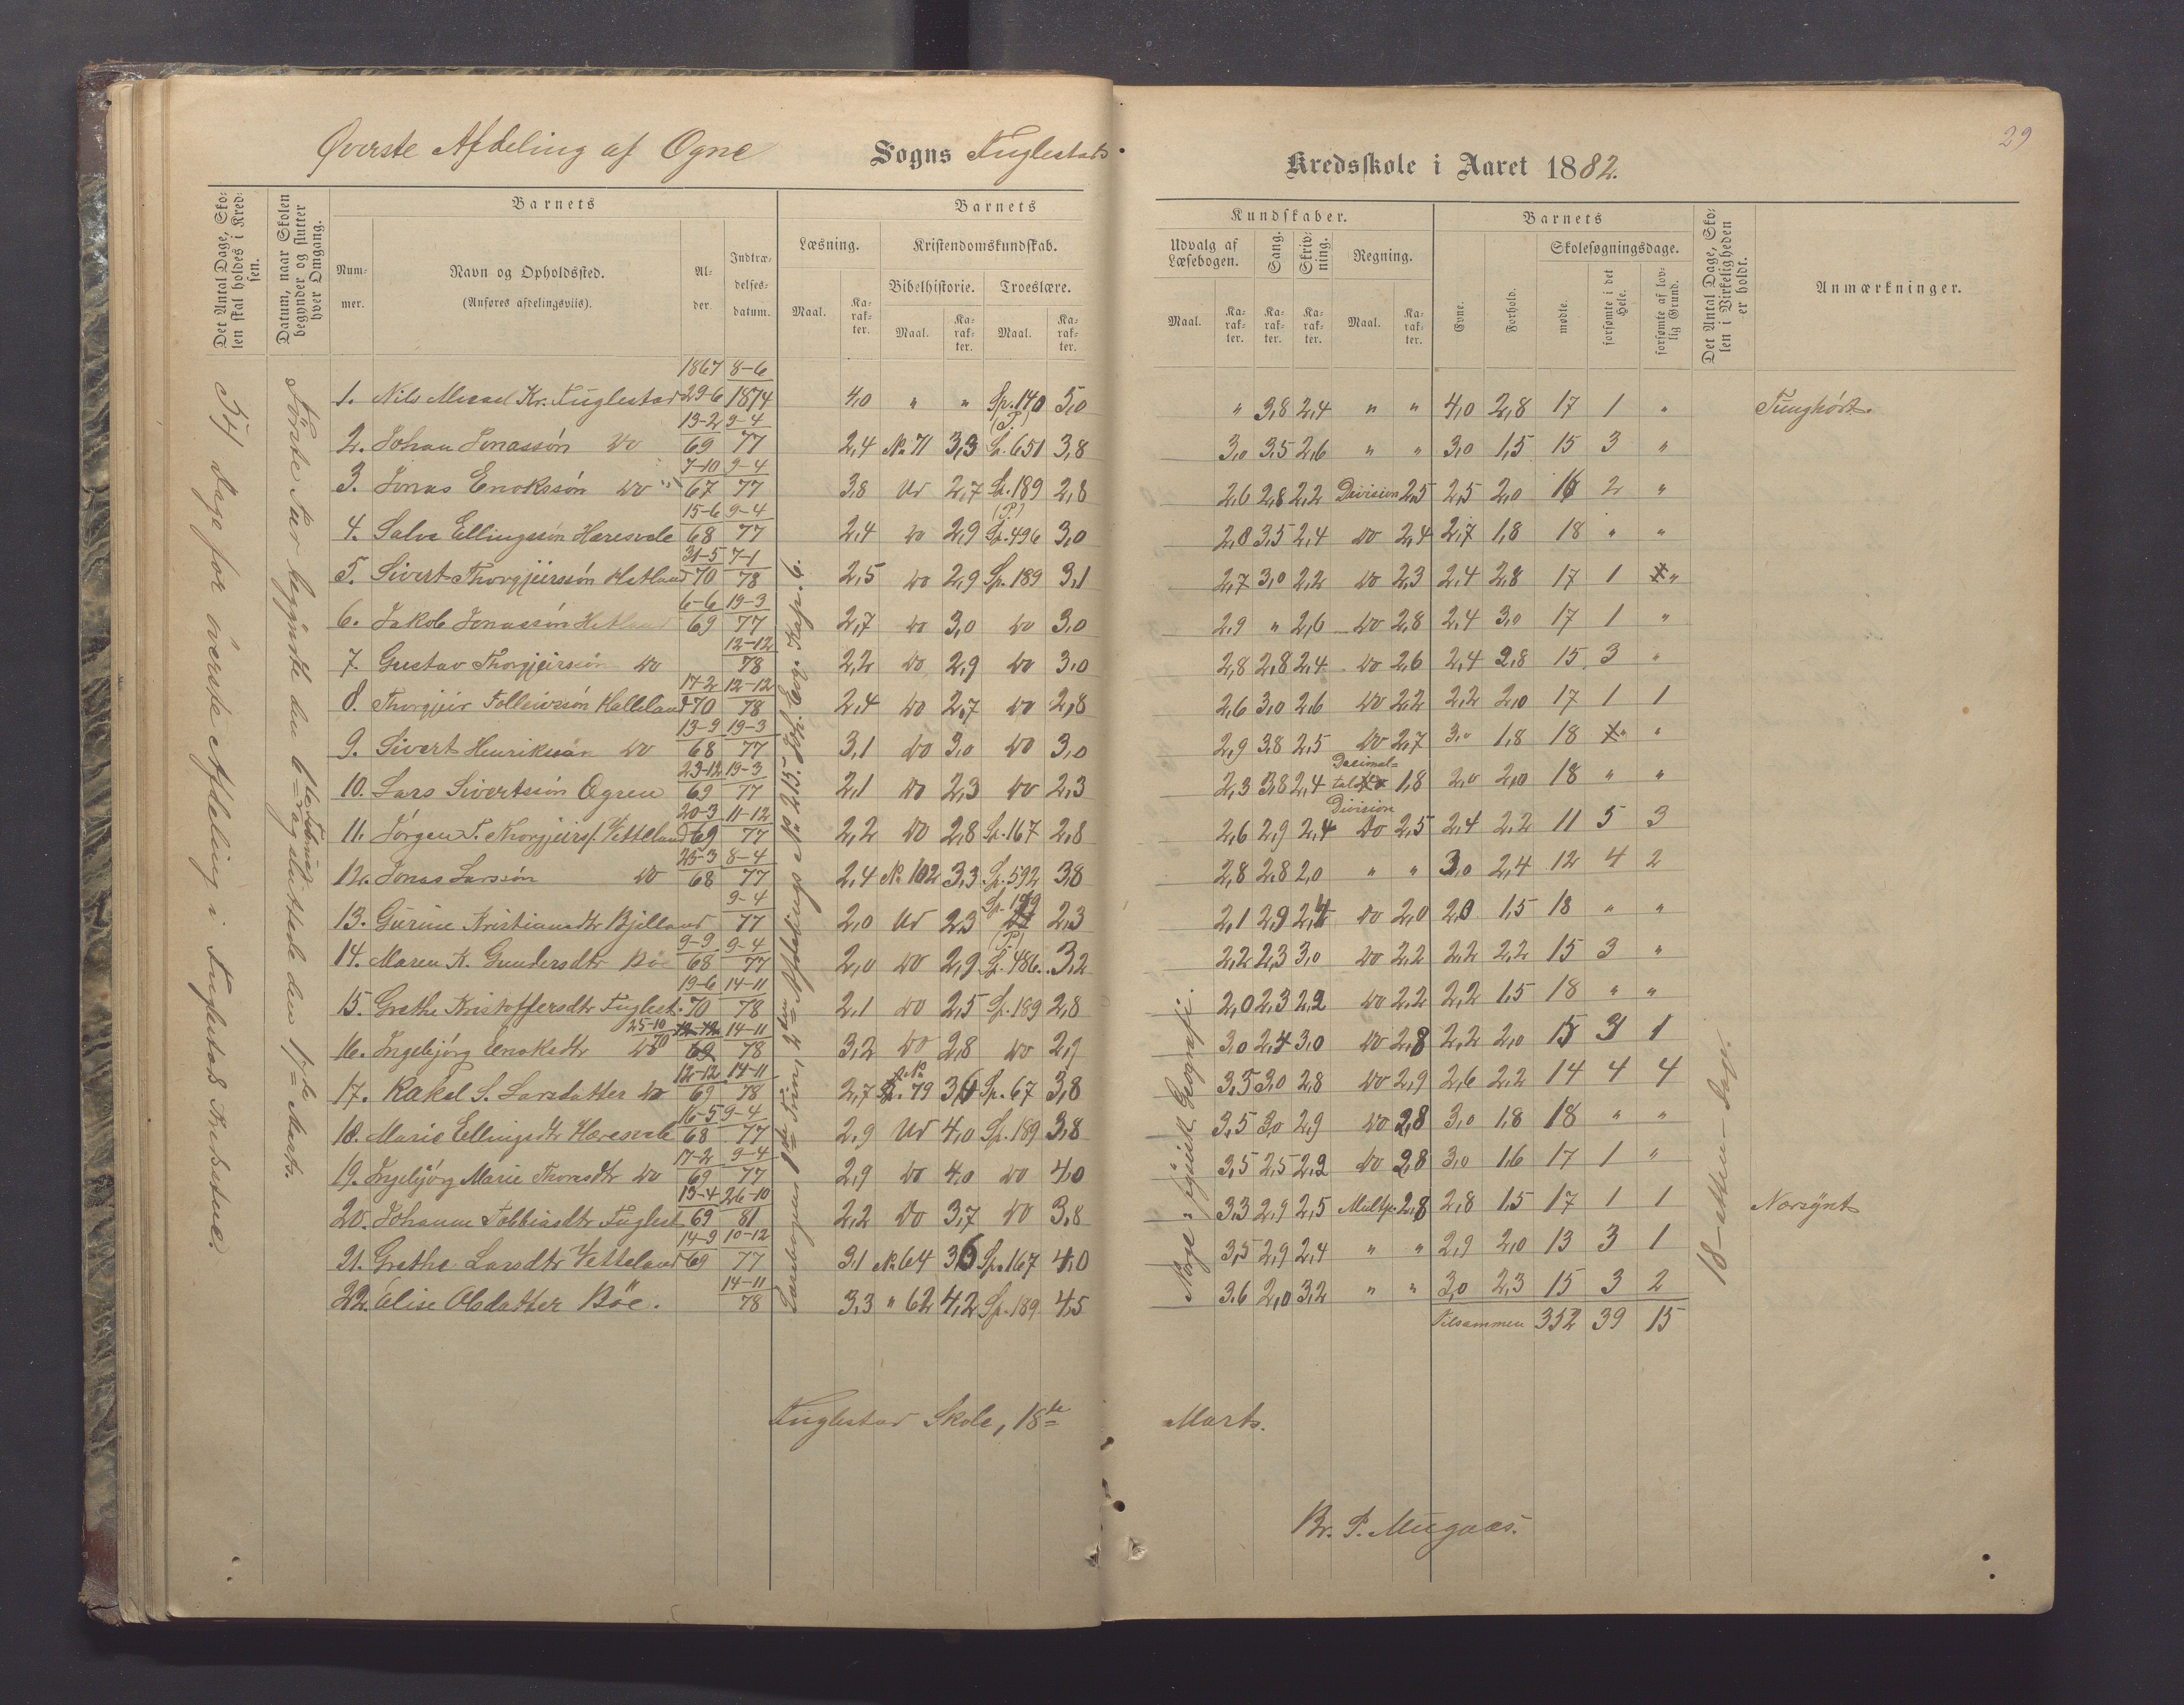 29
Øverste Afdeling af Ogne Sogns Fuglestads Kredsskole i Aaret 1882.
Det Antal Dage, Skolen skal holdes i Kredsen.
Datum, naar Skolen begynder og slutter hver Omgang.
Barnets
Nummer.
Navn og Opholdssted.
(Anføres afdelingsviis).
Alder.
Indtrædelsesdatum.
Barnets
Læsning.
Maal.
Karakter.
Kristendomskundskab.
Bibelhistorie.
Maal.
Karakter.
Troeslære.
Maal.
Karakter.
Kundskaber.
Udvalg af Læsebogen.
Maal.
Karakter.
Sang.
Karakter.
Skrivning.
Karakter.
Regning.
Maal.
Karakter.
Barnets
Evne.
Forhold.
Skolesøgningsdage.
mødte.
forsømte i det Hele.
forsømte af lovlig Grund.
Det Antal Dage, Skolen i Virkeligheden er holdt.
Anmærkninger.
Dage for øverste Afdeling i Fuglestad Kredsstue.
Første Nar begyndte den 6te Februar og sluttede den 17de Marts.
Norge fysisk Geografi.
18 - atten - Dage.
1. Nils Mikael Kr. Fuglestad 1867 29-6 8-6 1874 4,0 " " Sp. 140 5,0 " 3,8 2,4 " " 4,0 2,8 17 1 " Tunghørt.
2. Johan Jonassøn do 13-2 69 9-4 77 2,4 No 71 3,3 (P.) Sp. 651 3,8 3,0 3,5 2,6 " " 3,0 1,5 15 3 "
3. Jonas Enokssøn do 7-10 67 9-4 77 3,8 Ud 2,7 Sp. 189 2,8 2,6 2,8 2,2 Division 2,5 2,5 2,0 16 2 "
4. Salve Ellingssøn Haresvale 15-6 68 9-4 77 2,4 do 2,9 (P.) Sp. 496 3,0 2,8 3,5 2,4 do 2,4 2,7 1,8 18 " "
5. Sivert Thorgjeirssøn Hetland 31-5 70 7-1 78 2,5 do 2,9 Sp. 189 3,1 2,7 3,0 2,2 do 2,3 2,4 2,8 17 1 "
6. Jakob Jonassøn Hetland 6-6 69 19-3 77 2,7 do 3,0 do 3,0 2,9 " 2,6 do 2,8 2,4 3,0 17 1 "
7. Gustav Thorgjeirssøn do 12-12 78 2,2 do 2,9 do 3,0 2,8 2,8 2,4 do 2,6 2,4 2,8 15 3 "
8. Thorgjeir Tolleivssøn Helleland 17-2 70 12-12 78 2,4 do 2,7 do 2,8 2,6 3,0 2,6 do 2,2 2,2 2,0 17 1 1
9. Sivert Henrikssøn do 13-9 68 19-3 77 3,1 do 3,0 do 3,0 2,9 3,8 2,5 do 2,7 3,0 1,8 18 " "
10. Lars Sivertssøn Ogren 23-12 69 19-3 77 2,1 do 2,3 do 2,3 2,3 3,8 2,4 Decimaltal 1,8 2,0 2,0 18 " "
11. Jørgen T. Thorgjeirss. Vetteland 20-3 69 11-12 77 2,2 do 2,8 Sp. 167 2,8 2,6 2,9 2,4 Division do 2,5 2,4 2,2 11 5 3
12. Jonas Larssøn do 25-3 68 8-4 77 2,4 No 102 3,3 Sp. 592 3,8 2,8 2,8 2,0 " " 3,0 2,4 12 4 2
13. Gurine Kristiansdtr Bjelland 9-4 77 2,0 Ud 2,3 Sp. 189 2,3 2,1 2,9 2,4 do 2,0 2,0 1,5 18 " "
14. Maren K. Gundersdtr Bøe 9-9 68 9-4 77 2,0 do 2,9 (P.) Sp. 486. 3,2 2,2 2,3 3,0 do 2,2 2,2 2,2 15 3 "
15. Grethe Kristoffersdtr Fuglest. 19-6 70 14-11 78 2,1 do 2,5 Sp. 189 2,8 2,0 2,3 2,2 do 2,2 2,2 1,5 18 " "
16. Ingebjørg Enoksdtr do 25-10 70 14-11 78 3,2 do 2,8 do 2,9 3,0 2,4 3,0 do 2,8 2,2 2,0 15 3 1
17. Rakel S. Larsdatter do 12-12 69 14-11 78 2,7 No 79 3,6 Sp. 67 3,8 3,5 3,0 2,8 do 2,9 2,6 2,2 14 4 4
18. Marie Ellingsdtr Haresvale 16-5 68 9-4 77 2,9 Ud 4,0 Sp. 189 3,8 3,5 3,0 2,9 do 2,8 3,0 1,8 18 " "
19. Ingebjørg Marie Thoresdtr do 17-2 69 9-4 77 2,9 do 4,0 do 4,0 3,5 2,5 2,2 do 2,8 3,0 1,6 17 1 "
20. Johanne Tobbiasdtr Fuglest. 13-4 69 26-10 81 2,2 do 3,7 do 3,8 3,3 2,9 2,5 Multp. 2,8 2,8 1,5 17 1 1 Nærsynt
21. Grethe Larsdtr Vetteland 14-9 69 10-12 77 3,1 No 64 3,6 Sp. 167 4,0 3,5 2,9 2,4 " " 2,9 2,0 13 3 1
22. Elise Olsdatter Bøe. 14-11 78 3,3 " 62 4,2 Sp. 189 4,5 3,6 2,0 3,2 " " 3,0 2,3 15 3 2
Tilsammen 352 39 15
Fuglestad Skole, 18de Marts.
Br. P. Mugaas.